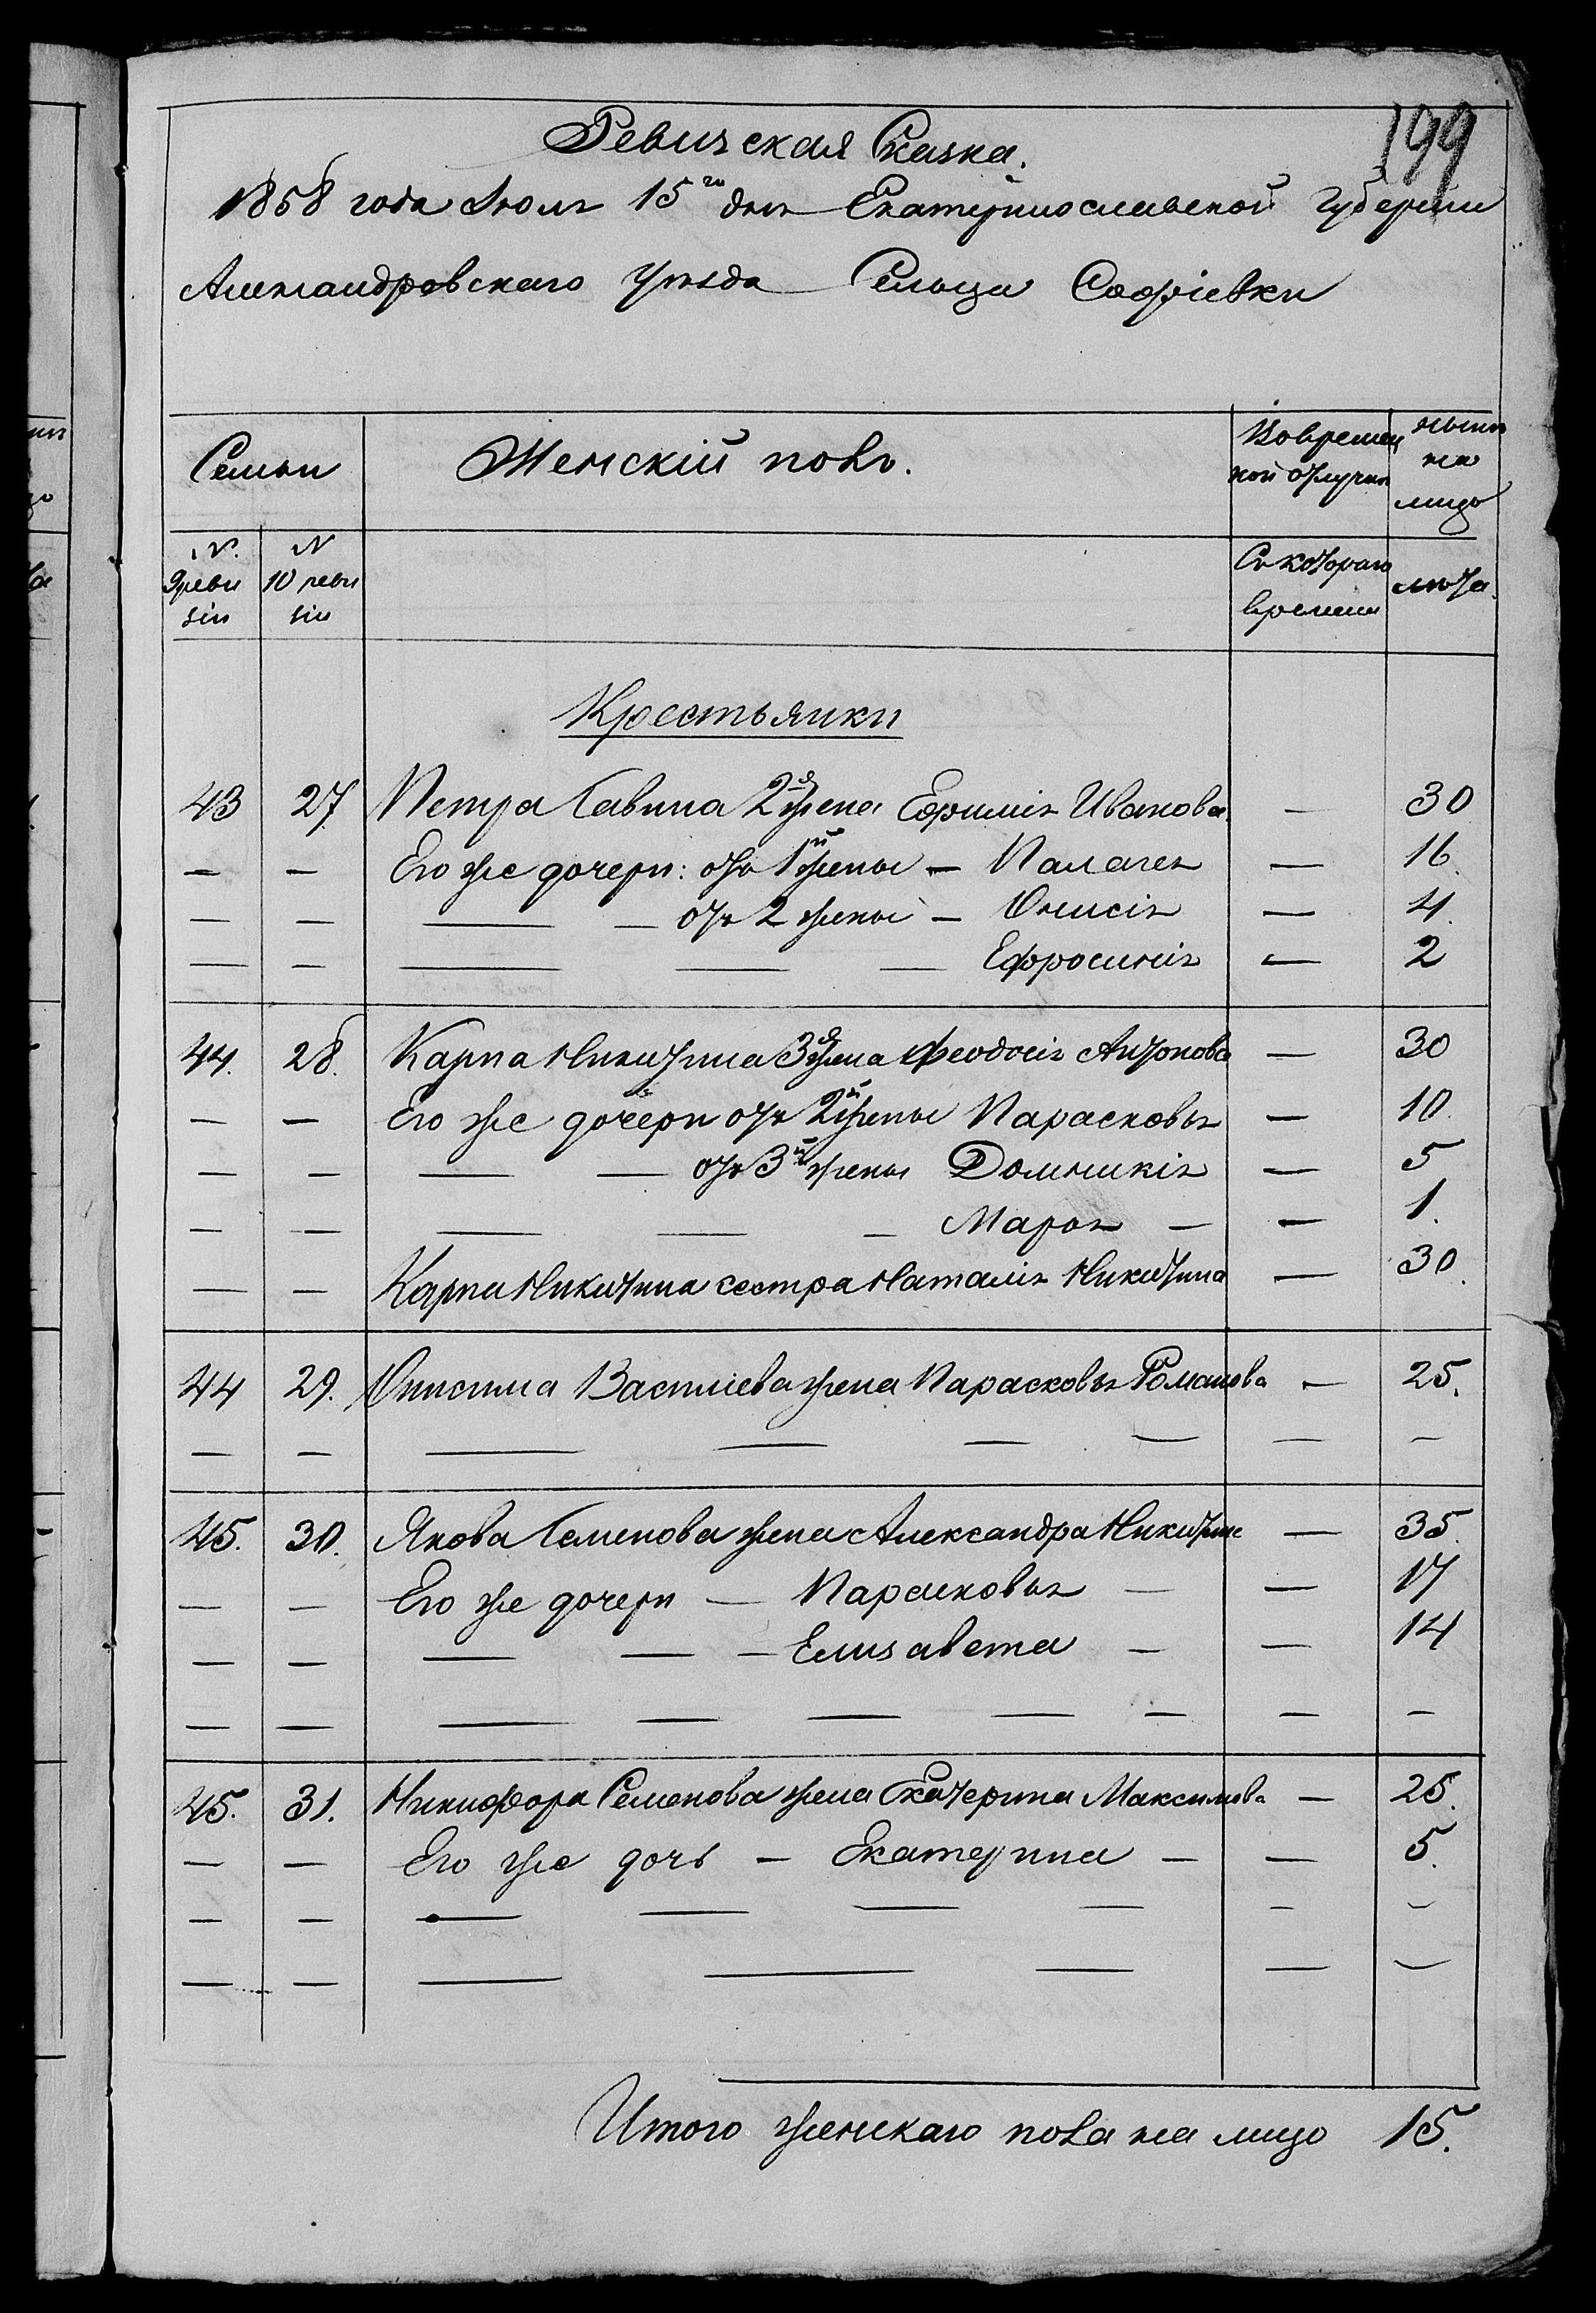 199
Ревизская Сказка.
1858 года Июля 15го дня Екатеринославской Губерніи
Александровскаго Уѣзда Сельца Софіевки
Семьи
Женскій полъ.
Во времен
ной отлучкѣ
нынѣ
на
лицо
№.
9 реви
зіи
№
10 реви
зіи
Съ котораго
времени
лѣта.
Крестьянки
43 27 Петра Савина 2я жена Ефимія Иванова — 30
— — Его же дочери: отъ 1й жены — Палагея — 16.
— — — — отъ 2 жены — Онисія — 4.
— — — — — Ефросинія — 2
44. 28. Карпа Никитина 3я жена Феодосія Антонова — 30
— — Его же дочери отъ 2й жены Парасковья — 10.
— — — — отъ 3й жены Домникія — 5
— — — — — Марья — — 1.
— — Карпа Никитина сестра Наталія Никитина — 30.
44 29. Васильева жена Парасковья Романова — 25.
— — — — — — — —
45. 30. Якова Семенова жена Александра Никитина — 35.
— — Его же дочери — Парасковья — — 17
— — — — — Елизавета — — 14
— — — — — — — — —
45. 31. Никифора Семенова жена Екатерина Максимова — 25.
— — Его же дочь — Екатерина — — 5.
— — — — — — — —
— — — — — — —
Итого женскаго пола на лицо 15.